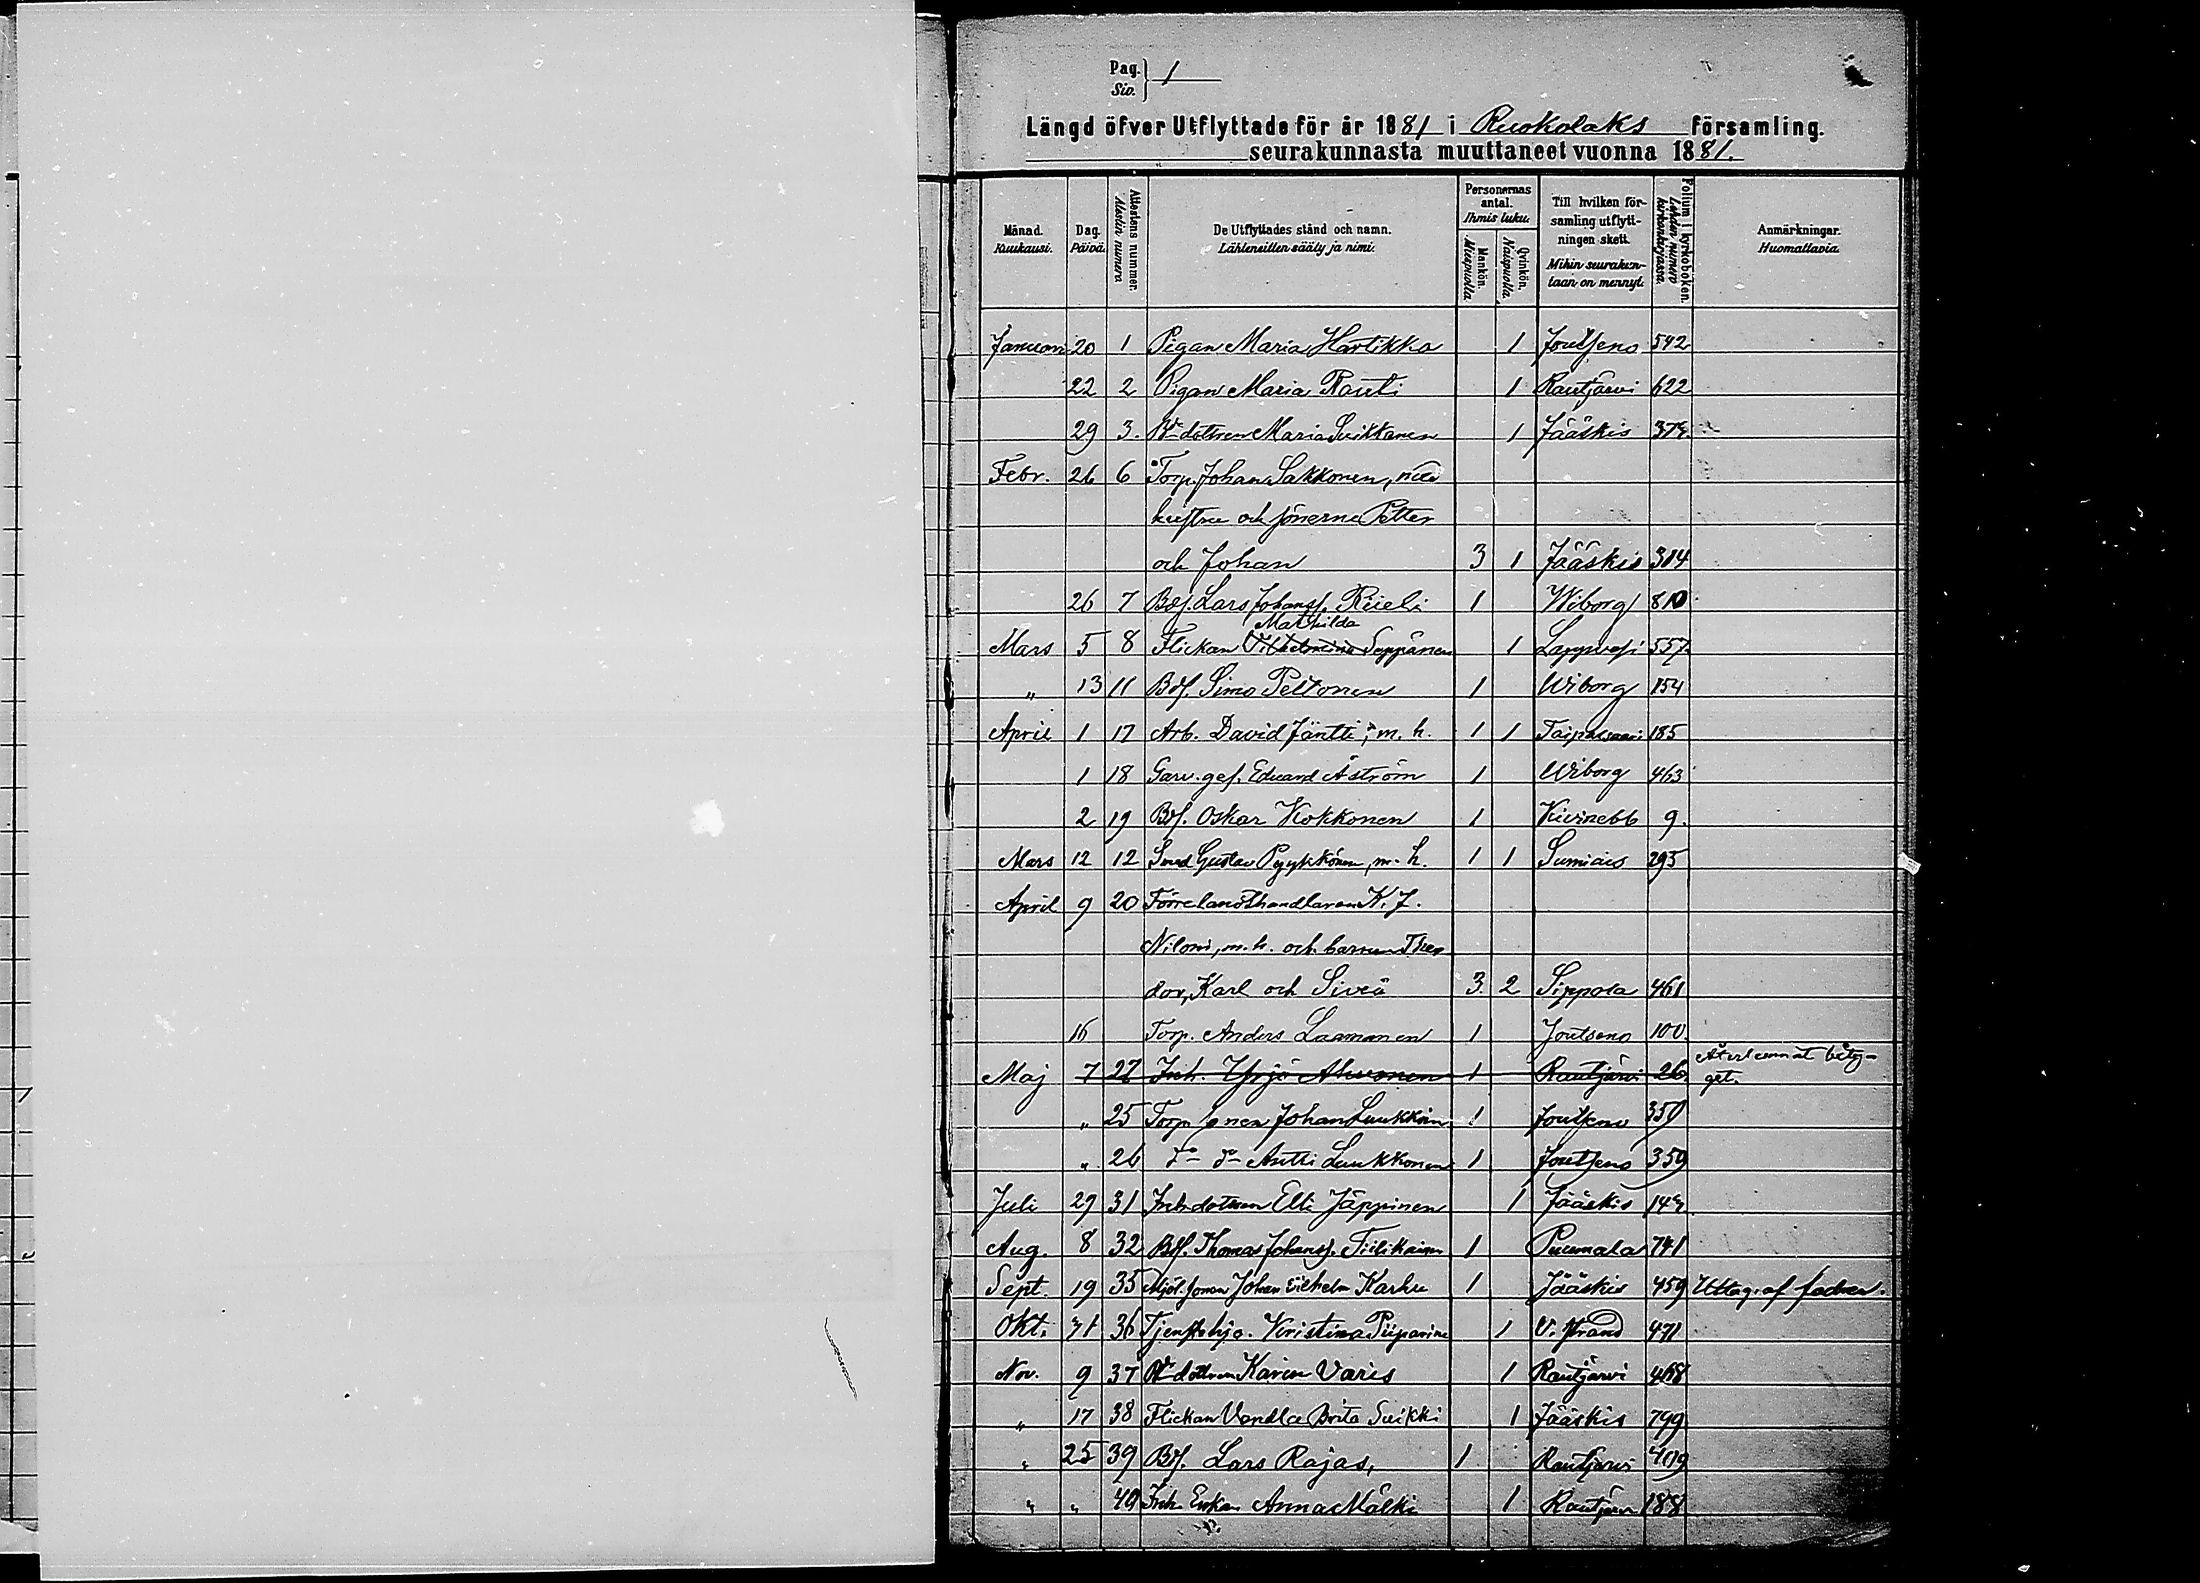 Pag. } 1
Siv.
Längd öfver Utflyttade för år 1881 i Ruokolaks församling.
seurakunnasta muuttaneet vuonna 1881.
Månad. Kuukausi. Dag. Päivä. Attestens nummer. Alestin numero De Utflyttades stånd och namn. Lähteneitten sääty ja nimi. Personernas antal. Ihmis luku. Mankön. Miespuolia Qvinkön. Naispuolia Till hvilken församling utflyttningen skett. Mihin seurakuntaan on mennyt. Folium i kyrkoboken. Lehden numero kirkonkirjassa. Anmärkningar. Huomattavia.
Januari 20 1 Pigan Maria Hartikka 1 Joutseno 542
22 2 Pigan Maria Rauti 1 Rautjärvi 622
29 3. Bd dottren Maria Suikkanen 1 Jääskis
Febr. 26 6 Torp. Johan Sakkonen, med
hustru och sönerna Petter
och Johan 3 1 Jääskis 314
26 7 Bds. Lars Johanss. 1 Wiborg 810
Mathilda
Mars 5 8 Flickan Vilhelmina Seppänen 1 Lappvesi 557
" 13 11 Bds. Simo Peltonen 1 Wiborg 154
April 1 17 Arb. David Jäntti, m. h. 1 1 Taipalsaari 185
1 18 Garv. ges. Edvard Åström 1 Wiborg 463
2 19 Bds. Oskar Kokkonen 1 Kivinebb 9.
Mars 12 12 Smed Gustav Pyykkönen, m. h. 1 1 Sumiais 295
April 9 20 Förrelandthandlaren K. J.
Niloni, m. h. och barnen Theo
dor, Karl och Siveä 3. 2 Sippola 461
16 Torp. Anders Laammanen 1 Joutseno 100.
Återlemnat betyg-
Maj 7 27 Inh. Yrjö Ahvonen 1 Rautjärvi 26. get.
" 25 Torp. sonen Johan Luukkonen 1 Joutseno 351
" 26 do do Antti Luukkonen 1 Joutseno 359
Juli 29 31 Inh. dottren Elli Jäppinen 1 Jääskis
Aug. 8 32 Bds. Thomas Johanss. Tiilikainen 1 Puumala 741
Sept. 19 35 Mjöl. sonen Johan Vilhelm Karhu 1 Jääskis 459 Uttag. af fadren.
Okt. 31 36 Tjenstehjo. Kristina 1 V. strand 471
Nov. 9 37 Bd dottren Karin Varis 1 Rautjärvi 468
" 17 38 Flickan Vendla Brita Suikki 1 Jääskis 799
" 25 39 Bds. Lars Rajas, 1 Rautjärvi 409
" " 40 Inh. Enkan Anna Mälki 1 Rautjärvi 188